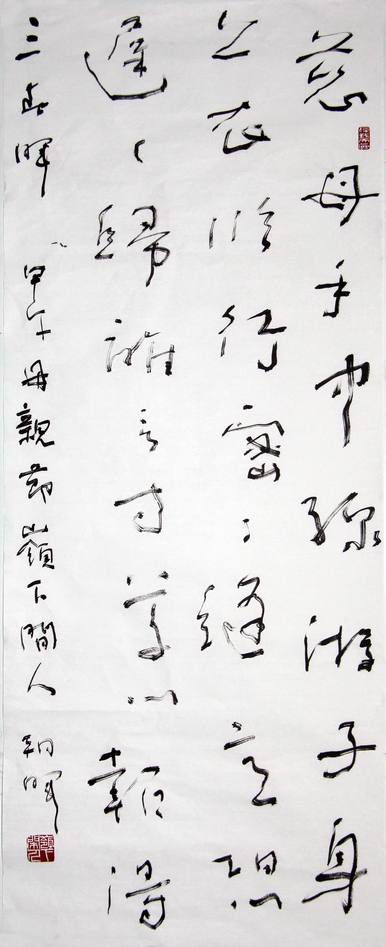 慈母手中線游子身
上衣臨行密密縫意恐
遲遲歸誰言寸草心報得
三春暉 甲午母親節嶺下閒人朝暉